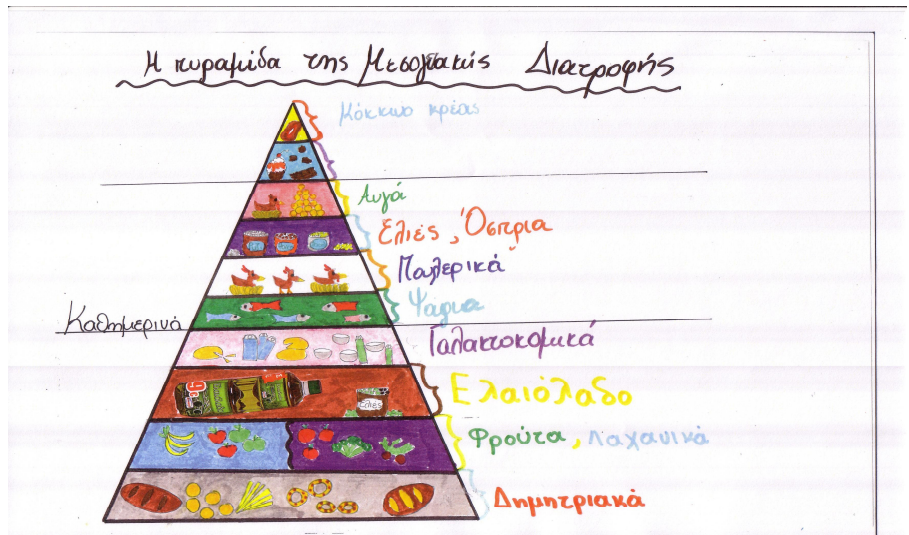 Η πυραμίδα της Μεσογειακής Διατροφής
Κόκκινο κρέας
Αυγά
Ελιές, Όσπρια
Πουλερικά
Ψάρια
Καθημερινά
Γαλακτοκομικά
Ελαιόλαδο
ελιές
Φρούτα, Λαχανικά
Δημητριακά